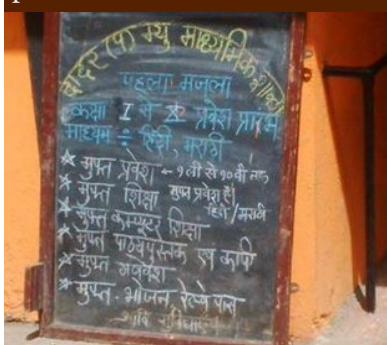 दादर (प) म्यु माध्यमिक शाळा
पहला मजला
कक्षा I से X प्रवेश प्रारंभ
माध्यम ÷ हिंदी, मराठी
* मुफ्त प्रवेश ← १ली से १०वी तक
* मुफ्त शिक्षा मुफ्त प्रवेश है।
हिंदी/मराठी
* मुफ्त कम्प्युटर शिक्षा
* मुफ्त पाठ्यपुस्तक एवं कापि
* मुफ्त गणवेश
* मुफ्त भोजन, रेल्वे पास
आदि सुविधाएँ